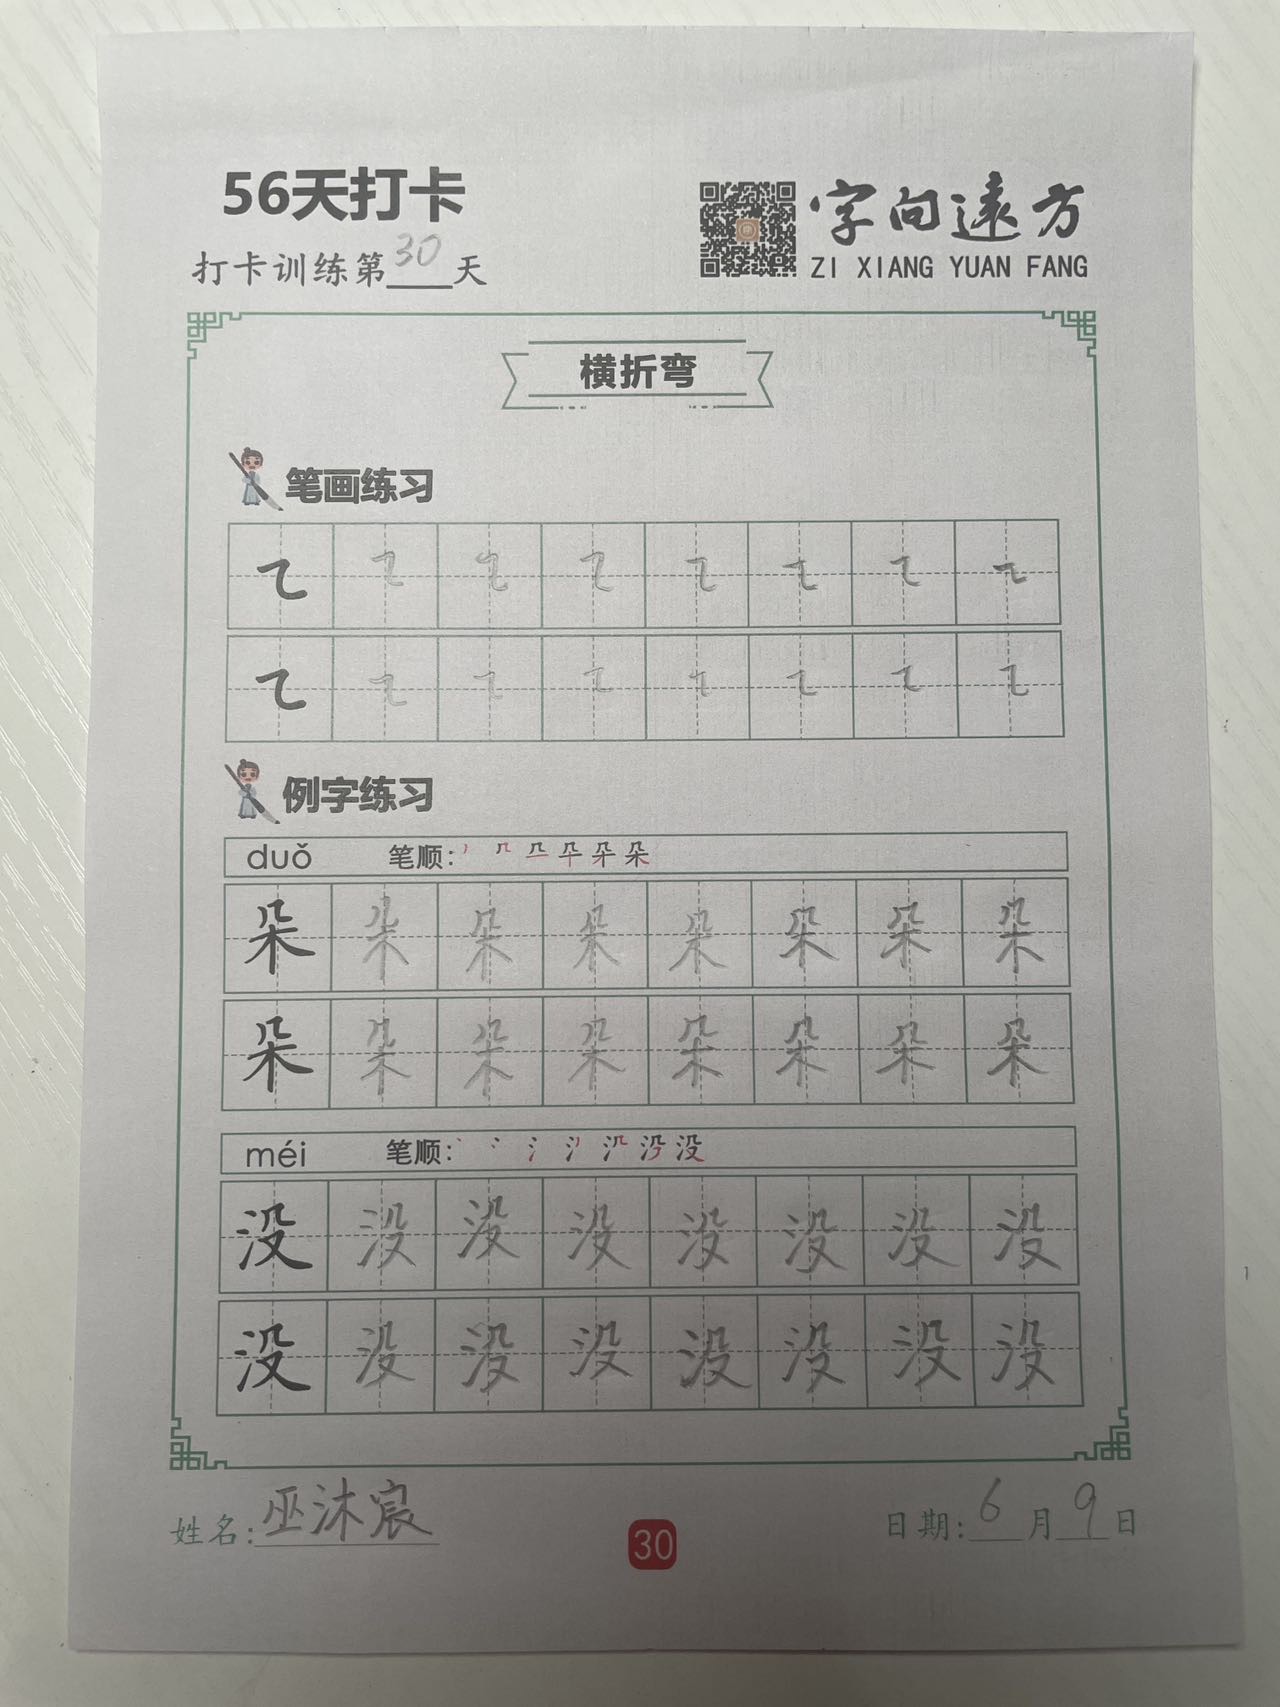 56天打卡
打卡训练第30天
字向遠方
ZI XIANG YUAN FANG
横折弯
笔画练习
㇍ ㇍ ㇍ ㇍ ㇍ ㇍ ㇍ ㇍
㇍ ㇍ ㇍ ㇍ ㇍ ㇍ ㇍ ㇍
例字练习
duǒ 笔顺: 朵
朵 朵 朵 朵 朵 朵 朵 朵
朵 朵 朵 朵 朵 朵 朵 朵
méi 笔顺: 没
没 没 没 没 没 没 没 没
没 没 没 没 没 没 没 没
姓名: 巫沐宸
30
日期: 6月9日